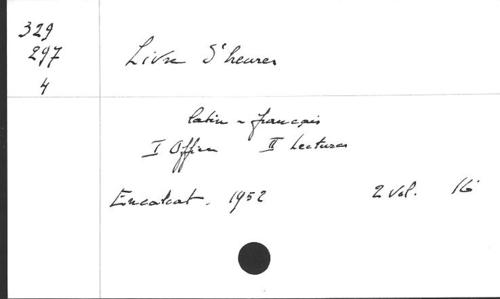 329
297
4
Livre d'heures
latin - français
I Offices II Lectures
Encalcat. 1952 2 vol. 16°